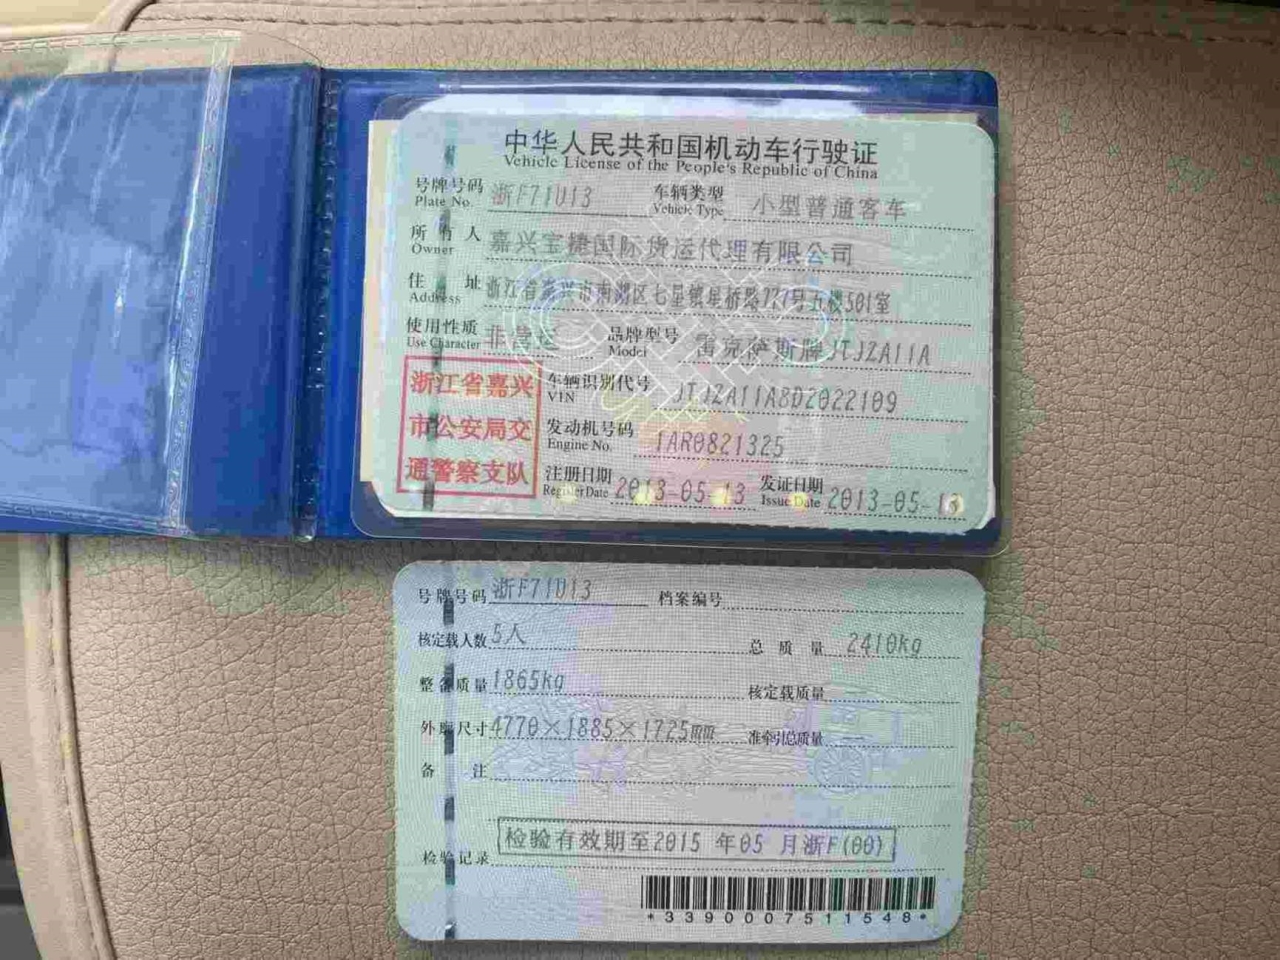 中华人民共和国机动车行驶证
Vehicle License of the People's Republic of China
号牌号码 浙F71U13 车辆类型 小型普通客车
Plate No. Vehicle Type
所有人 嘉兴宝捷国际货运代理有限公司
Owner
住址 浙江省嘉兴市南湖区七星镇阜桥路727号五楼501室
Address
使用性质 非营运 品牌型号 雷克萨斯牌JTJZA11A
Use Character Model
浙江省嘉兴 车辆识别代号 JTJZA11A8D2022109
VIN
市公安局交 发动机号码 1AR0821325
Engine No.
通警察支队 注册日期 2013-05-13 发证日期 2013-05-13
Register Date Issue Date
号牌号码 浙F71U13 档案编号
核定载人数 5人 总质量 2410kg
整备质量 1865kg 核定载质量
外廓尺寸 4770×1885×1725mm 准牵引总质量 —
备注
检验有效期至2015 年05 月浙F(00)
检验记录
*3390007511548*